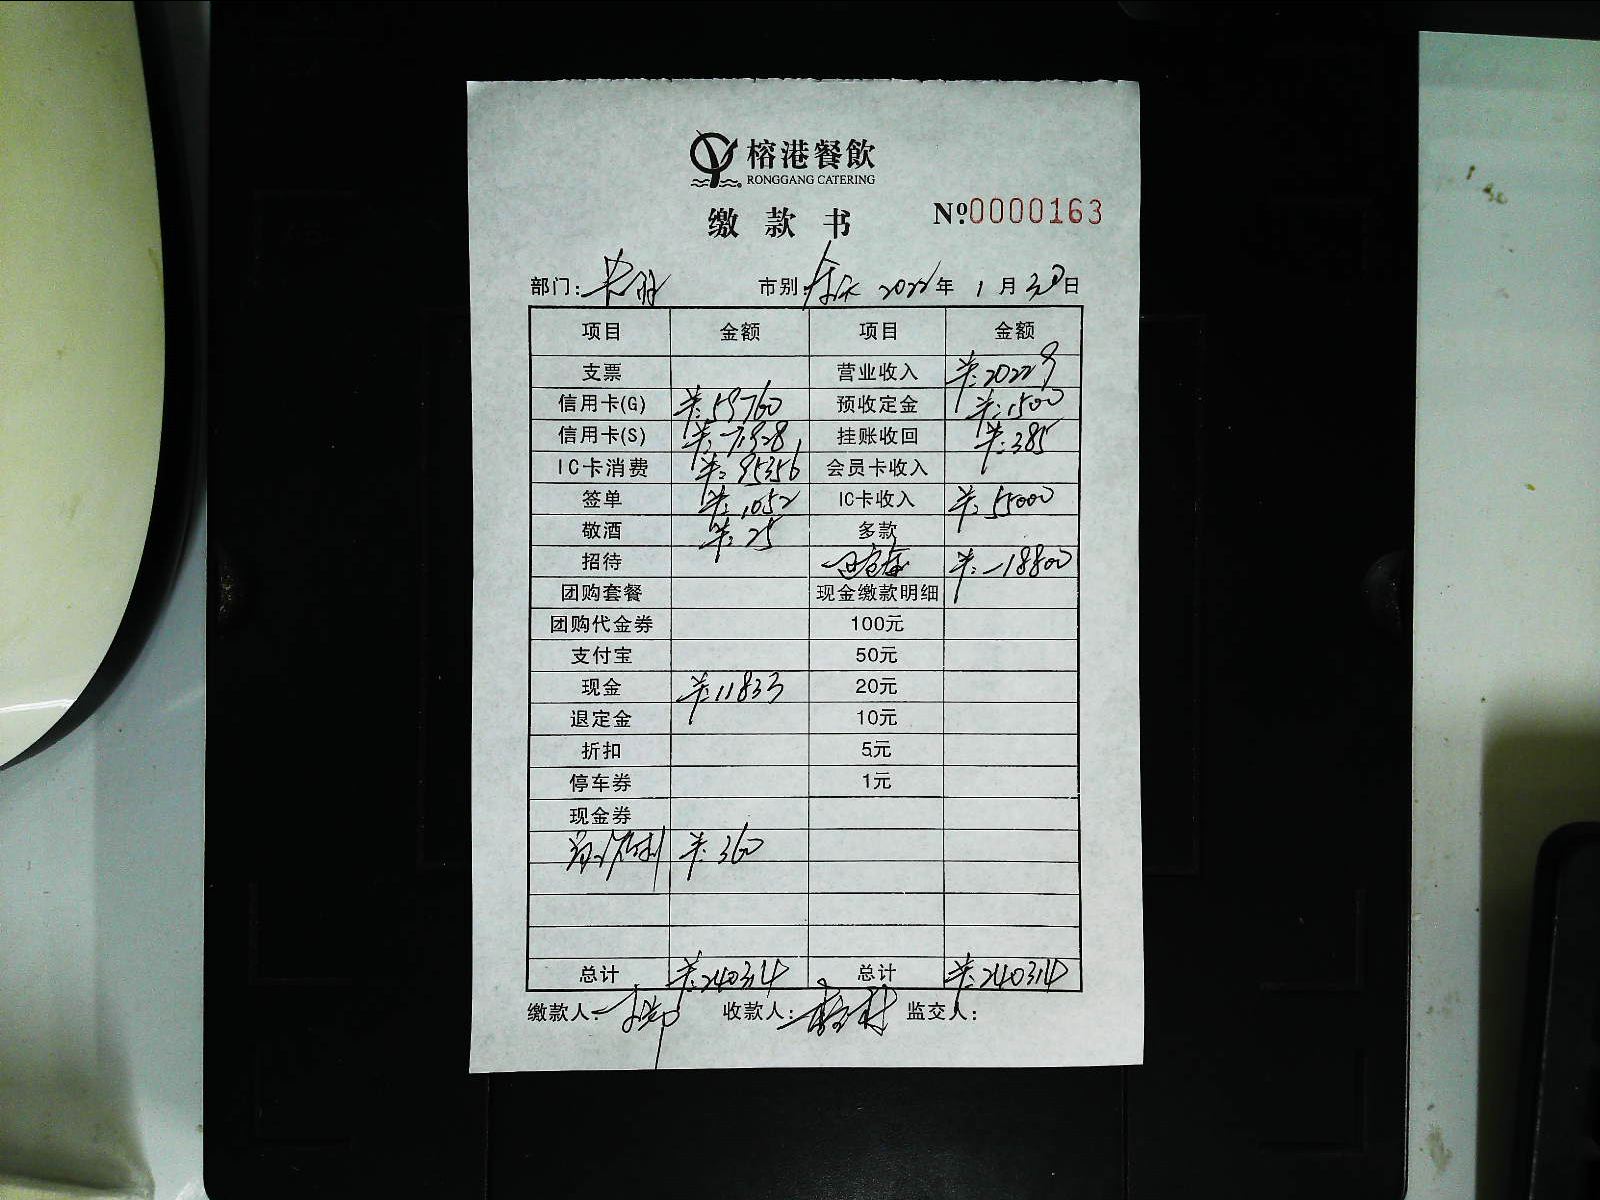 榕港餐飲
RONGGANG CATERING
缴款书 №0000163
部门: 市别:全天 2022年 1月30日
项目 金额 项目 金额
支票 营业收入 ¥:202229
信用卡(G) ¥:59760 预收定金 ¥:1500
信用卡(S) ¥:71928 挂账收回 ¥:385
IC卡消费 ¥:95356 会员卡收入
签单 ¥:1052 IC卡收入 ¥:55000
敬酒 ¥:25 多款
招待 ¥:-18800
团购套餐 现金缴款明细
团购代金券 100元
支付宝 50元
现金 ¥:11833 20元
退定金 10元
折扣 5元
停车券 1元
现金券
¥:360
总计 ¥:240314 总计 ¥:240314
缴款人: 收款人: 监交人: